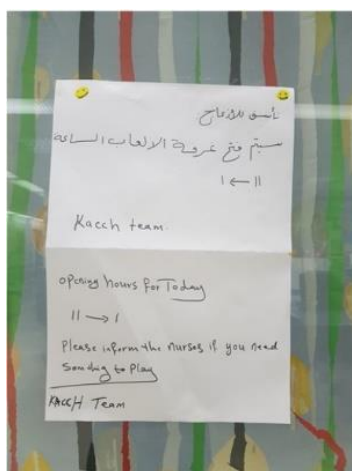 نأسف للازعاج
سيتم فتح غرفة الالعاب الساعة
١ ← ١١
Kacch team.
opening hours for Today
11 → 1
Please inform the nurses if you need
Somdig to Play
KACCH Team